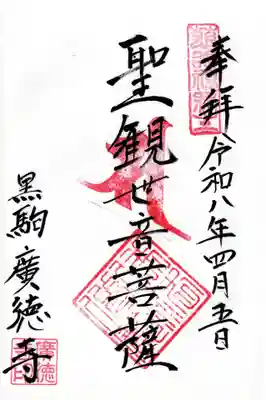 奉拝 令和八年四月五日
聖観世音菩薩
黒駒 廣徳寺
廣徳寺印